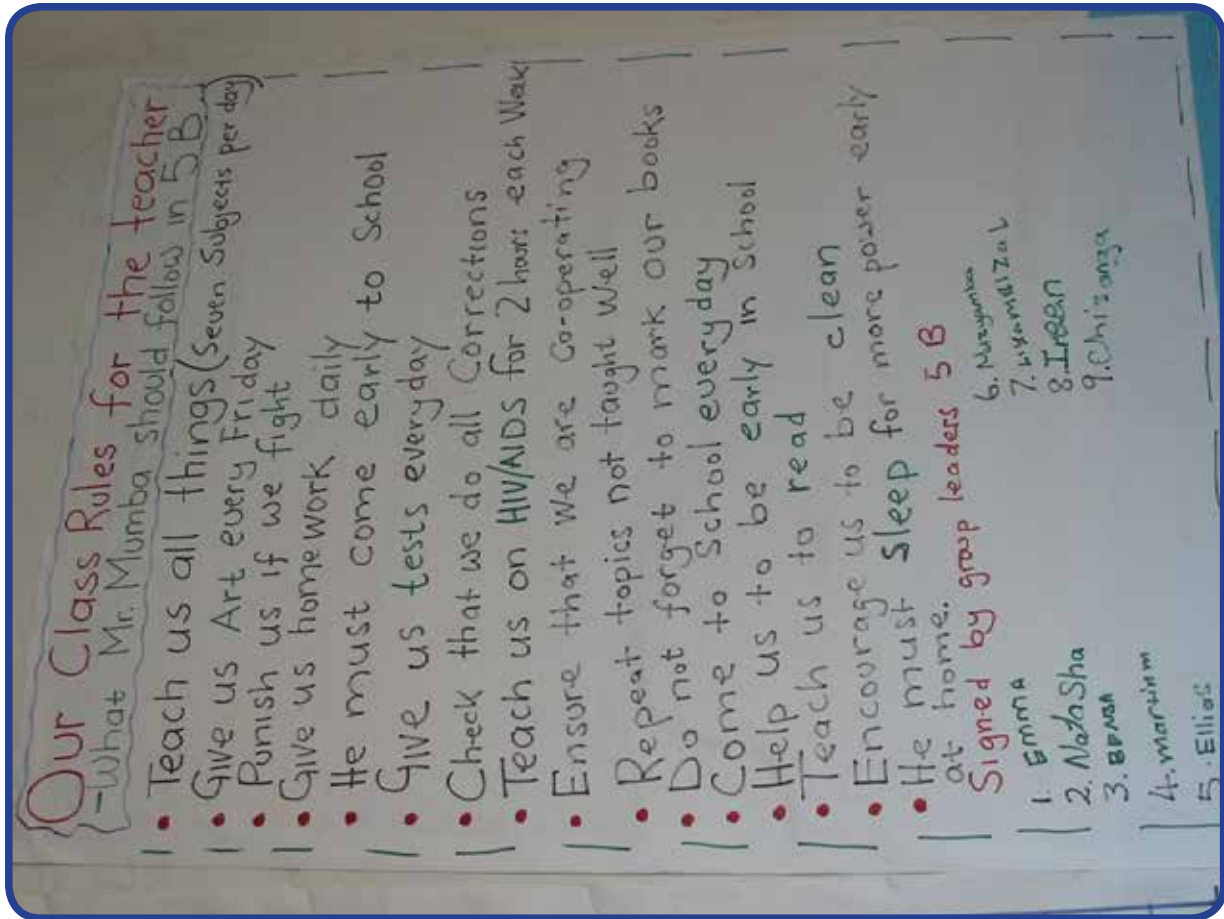 Our Class Rules for the teacher
-What Mr. Mumba should follow in 5B
• Teach us all things (Seven Subjects per day)
• Give us Art every Friday
• Punish us if we fight
• Give us homework daily
• He must come early to School
• Give us tests everyday
• Check that we do all Corrections
• Teach us on HIV/AIDS for 2 hours each Week
• Ensure that we are Co-operating
• Repeat topics not taught Well
• Do not forget to mark our books
• Come to School everyday
• Help us to be early in School
• Teach us to read
• Encourage us to be clean
• He must sleep for more power early
at home.
Signed by group leaders 5B
1. Emma
2. Natasha
3.
4. mariam
5. Elias
6.
7.
8. Ireen
9. Chizonga